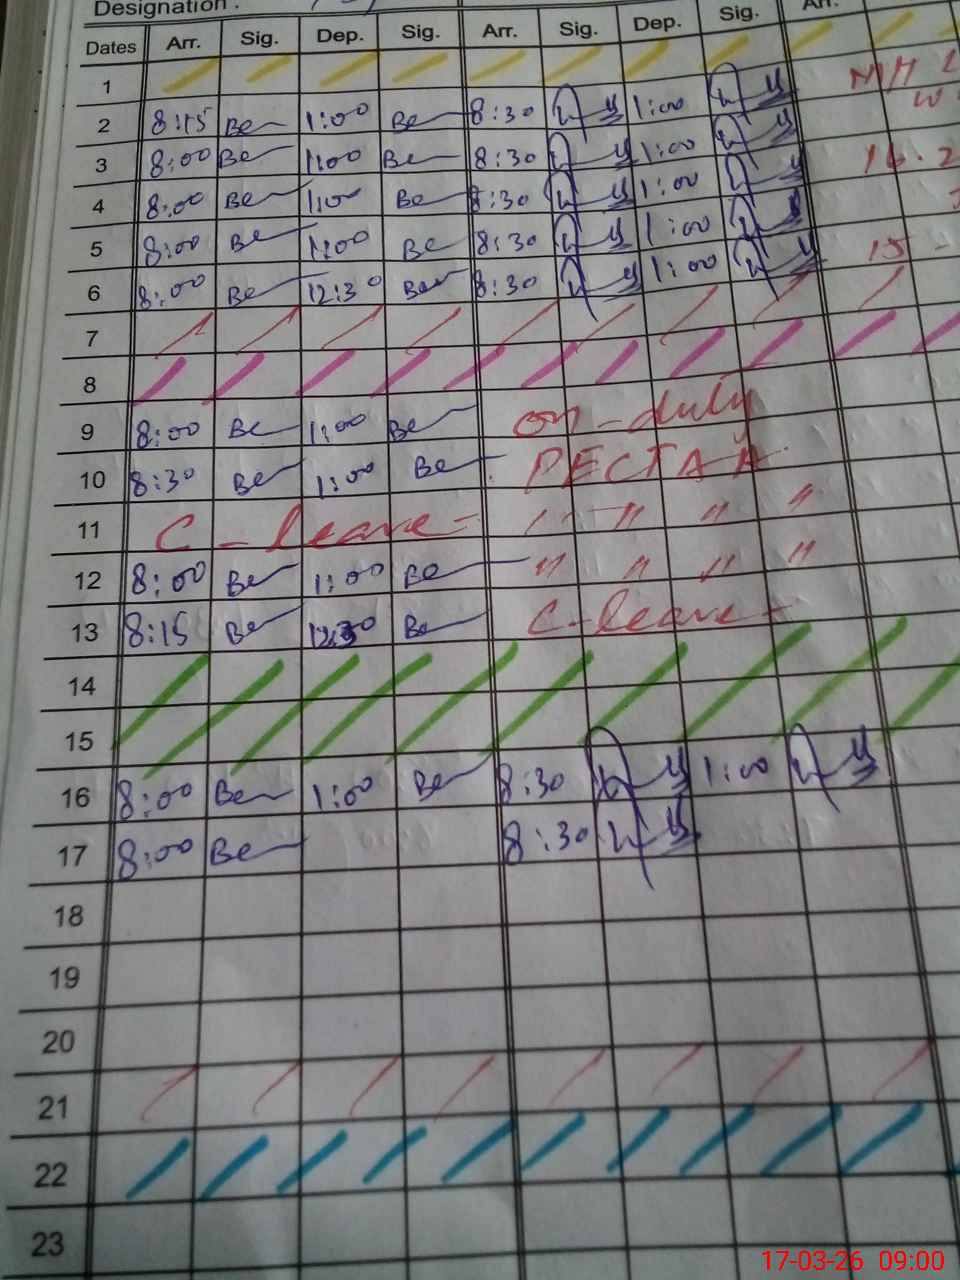 Designation :
Dates Arr. Sig. Dep. Sig. Arr. Sig. Dep. Sig. Arr.
1
2 8:15 Be 1:00 Be 8:30 1:00
3 8:00 Be 1:00 Be 8:30 1:00
4 8:00 Be 1:00 Be 8:30 1:00
5 8:00 Be 1:00 Be 8:30 1:00
6 8:00 Be 12:30 Be 8:30 1:00
7
8
9 8:00 Be 1:00 Be on-duty
10 8:30 Be 1:00 Be PECTAA
11 C-leave- " " " "
12 8:00 Be 1:00 Be " " " "
13 8:15 Be 12:30 Be C-leave-
14
15
16 8:00 Be 1:00 Be 8:30 1:00
17 8:00 Be 8:30
18
19
20
21
22
23
17-03-26 09:00